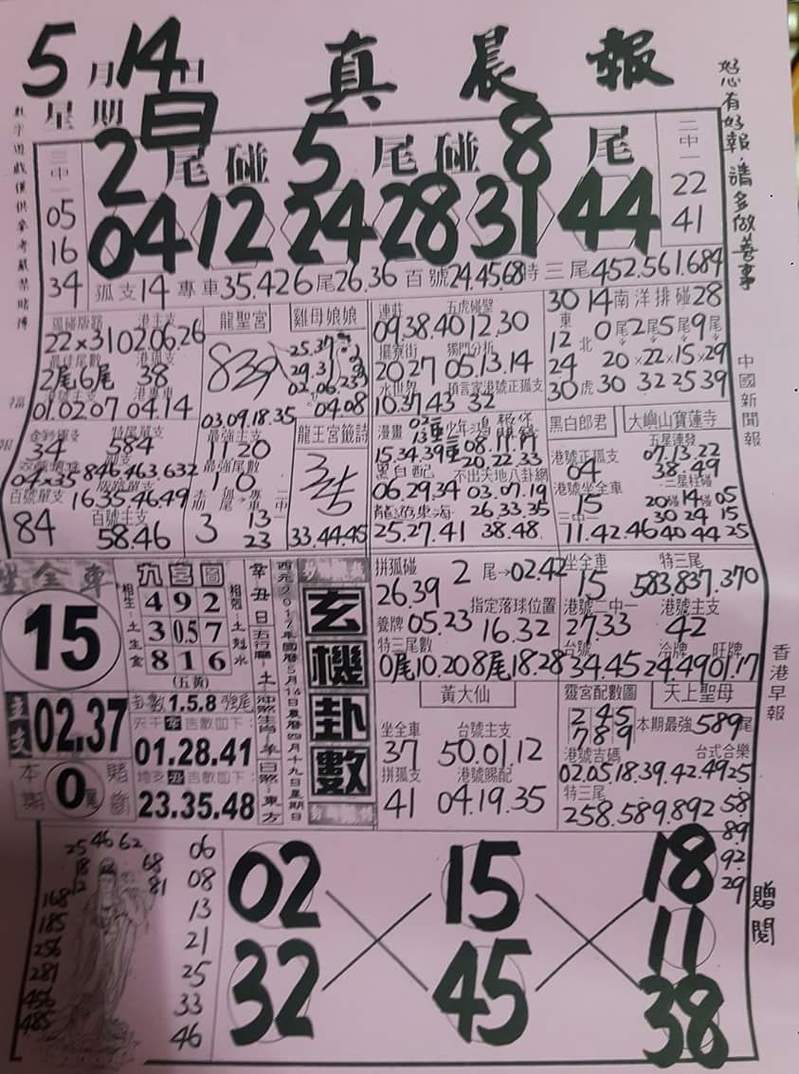 5月14日
星期日
真晨報
好心有好報.請多做善事
數字遊戲僅供參考嚴禁賭博
2尾碰5尾碰8尾
三中一
05
16
34
04 12 24 28 31 44
二中一
22
41
孤支14專車35.426尾26.36百號24.45.68特三尾452.561.684
港主支
22×31 02.06.26
2尾6尾 38
01.02.07 04.14
龍聖宮
839
03.09.18.35
雞母娘娘
25.37
29.31
02.06.23
04.08
連莊 五虎碰壁
09.38.40 12.30
獨門分析
20.27 05.13.14
水世界 預言家港號正孤支
10.37.43 32
30 14 南洋排碰 28
東 12 北 0尾2尾5尾9尾
24 20×22×15×29
30 虎 30 32 25 39
中國新聞報
特尾單支
34 584
04×35 846.463.632
百號單支 16.35.46.49
百號主支
84 58.46
最強主支
11.20
最強尾數
1.0
3 13 23
龍王宮籤詩
33.44.45
漫畫
15.34.39
20.22.33
黑白配 不出天地八卦網
06.29.34 03.07.19
26.33.35
25.27.41 38.48
黑白郎君 大嶼山寶蓮寺
港號正孤支
04
港號坐全車
15
二中一
11.42.46
五星連發
07.13.22
38.49
三星柱碰
20 14 05
30 24 15
40 44 25
坐全車
15
主支
02.37
本期 0尾 賭斷
九宮圖
相生:土生金
相剋:土剋水
4 9 2
3 0.5 7
8 1 6
(五黃)
吉數1.5.8強尾
天干辛吉數如下:
01.28.41
地支丑吉數如下:
23.35.48
辛丑日五行屬:土 沖煞生肖:羊 日煞:東方
西元2017年國曆5月14日農曆四月十九日星期日
玄機卦數
拼孤碰 2尾→02.42
26.39
指定落球位置
養牌 05.23 16.32
特三尾數
0尾10.20 8尾18.28
坐全車
15
特三尾
583.837.370
港號二中一
27.33
港號主支
42
台號 冷牌 旺牌
34.45 24.49 01.17
香港早報
黃大仙
坐全車 台號主支
37 50.01.12
拼孤支 港號賜配
41 04.19.35
靈宮配數圖 天上聖母
2 4 5
7 8 9
本期最強589尾
港號吉碼 台式合樂
02.05.18.39.42.49 25.
特三尾
258.589.892 58.
89
92.
29
贈閱
25 46 62
18 68
12 81
168
185
256
281
456
485
06
08
13
21
25
33
46
02 15 18
11
32 45 38